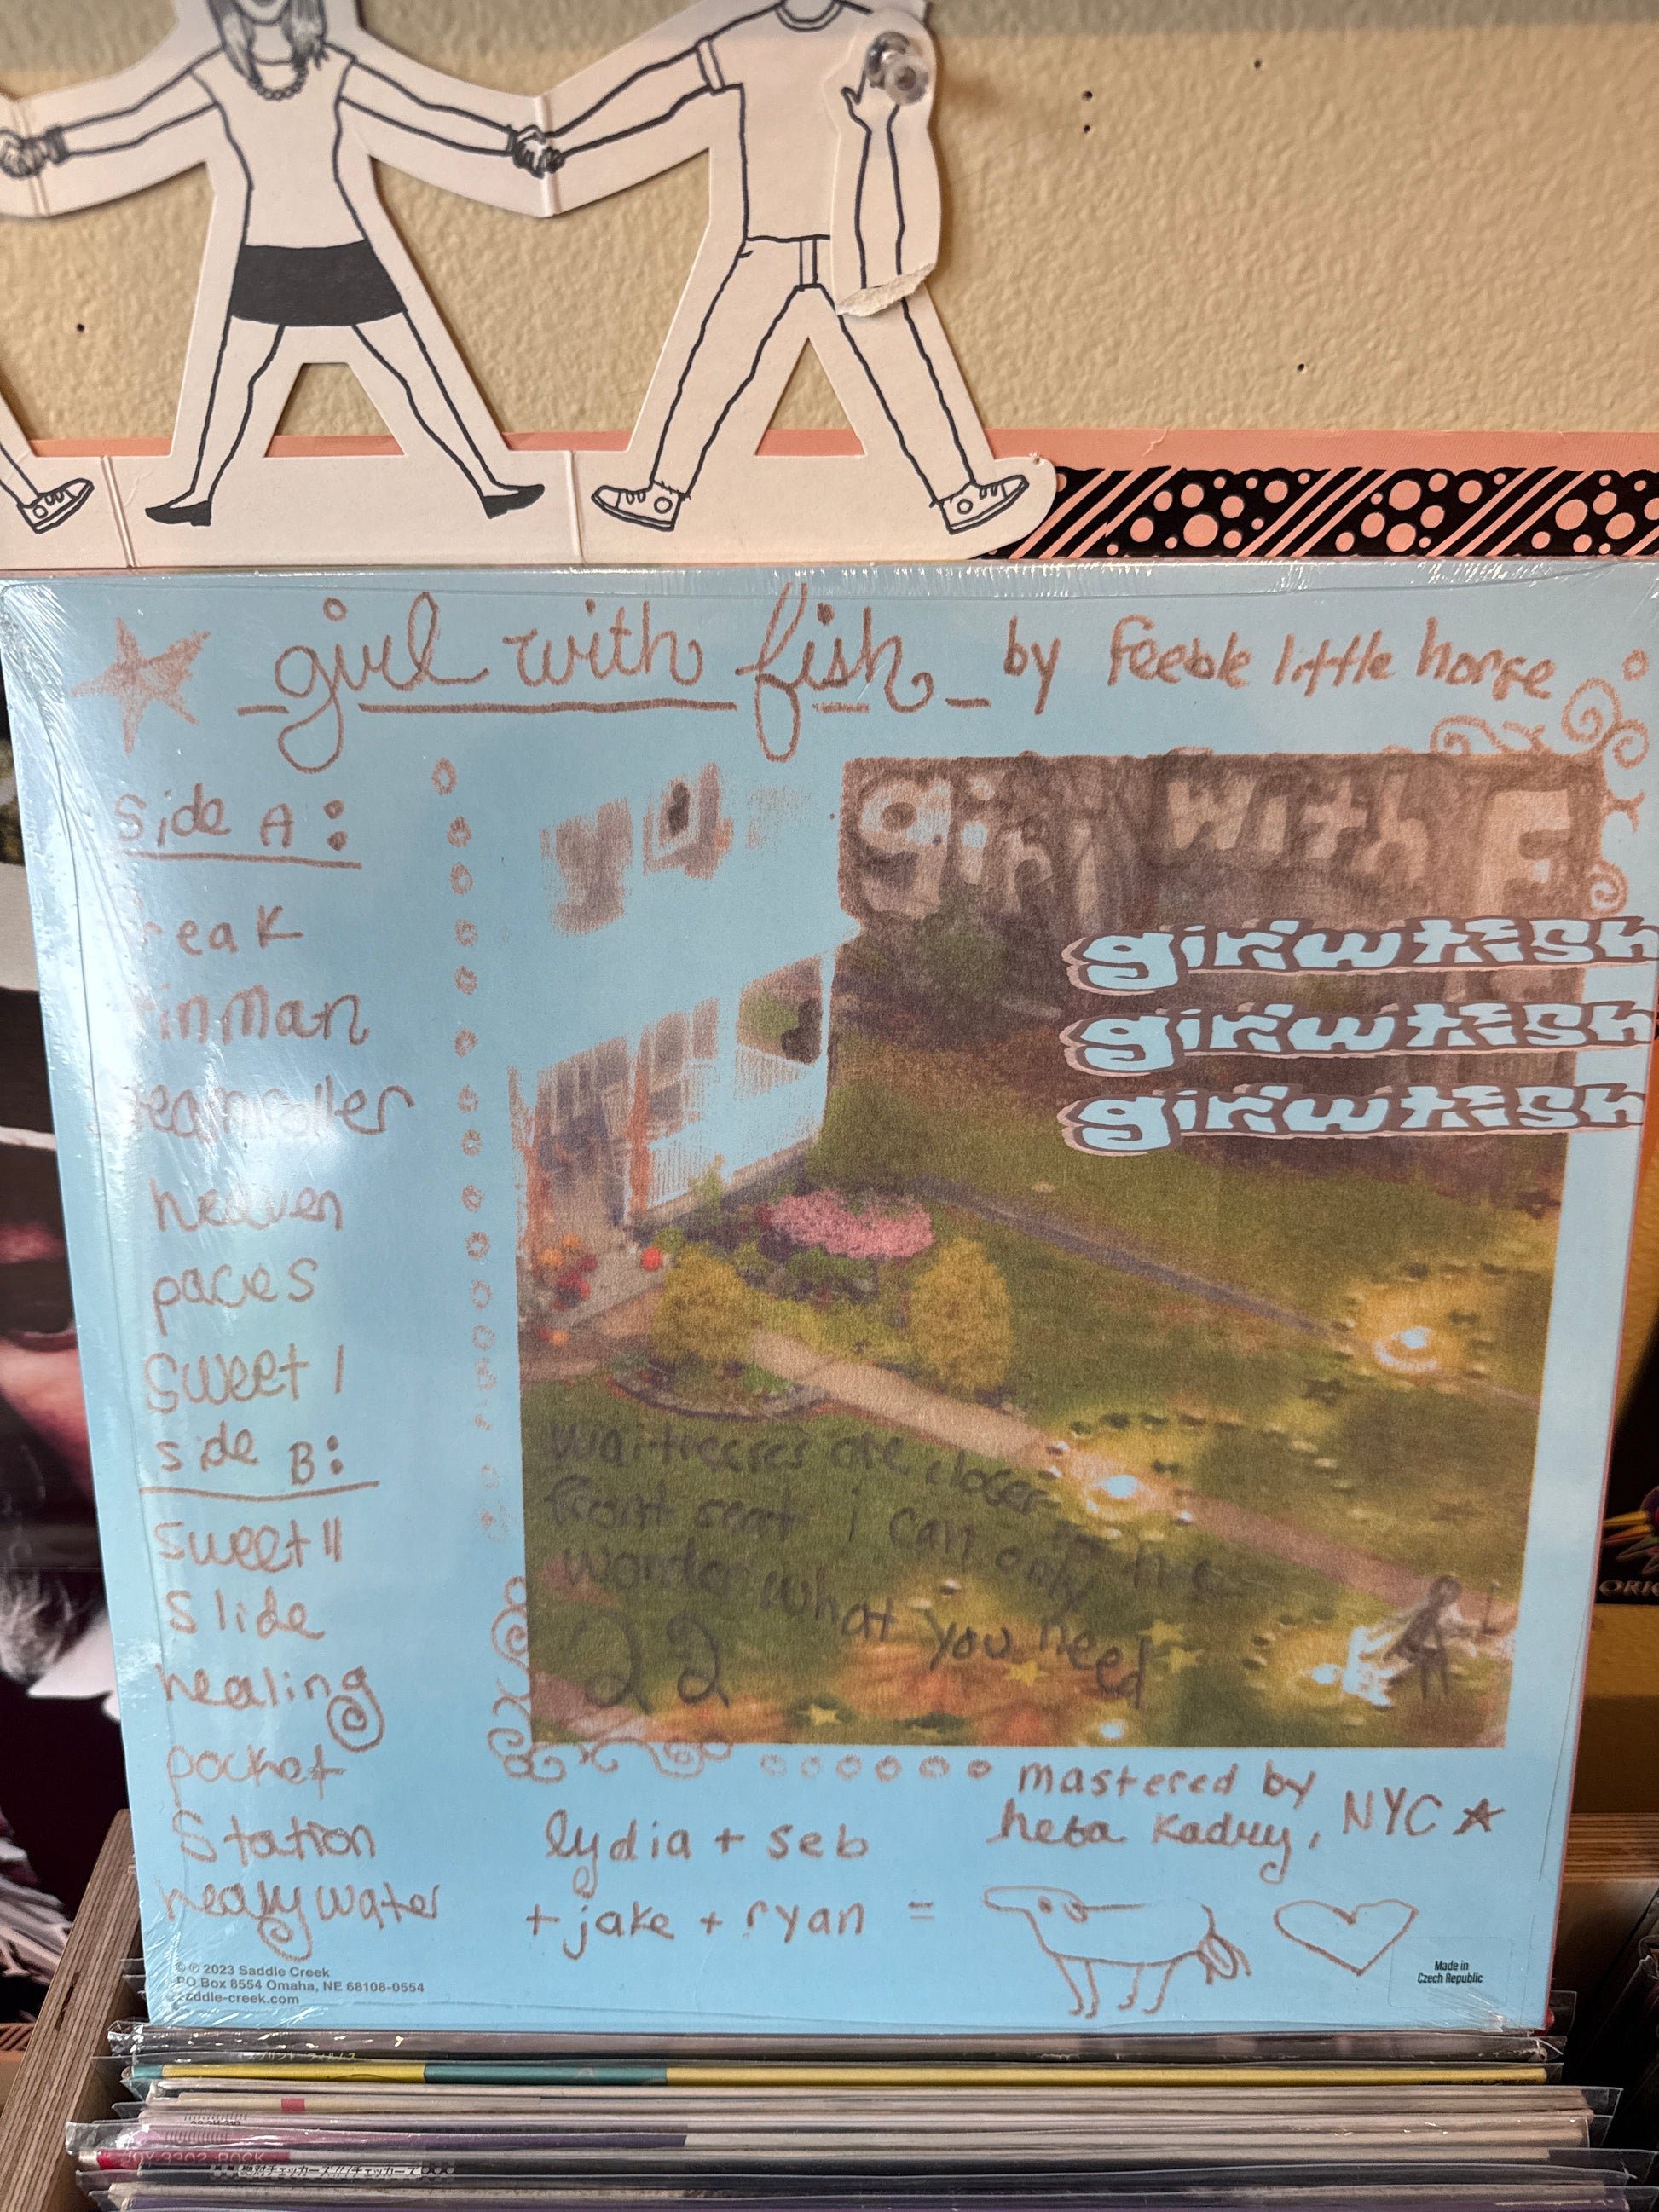 girl with fish by feeble little horse
side A:
freak
tin man
steamroller
heaven
paces
sweet I
side B:
sweet II
slide
healing
pocket
station
heavy water
girl with F
girlwfish
girlwfish
girlwfish
waitresses are closer
front seat i can only
wonder what you need
22
mastered by
heba Kadry, NYC
lydia + seb
+ jake + ryan =
© ℗ 2023 Saddle Creek
PO Box 8554 Omaha, NE 68108-0554
saddle-creek.com
Made in
Czech Republic